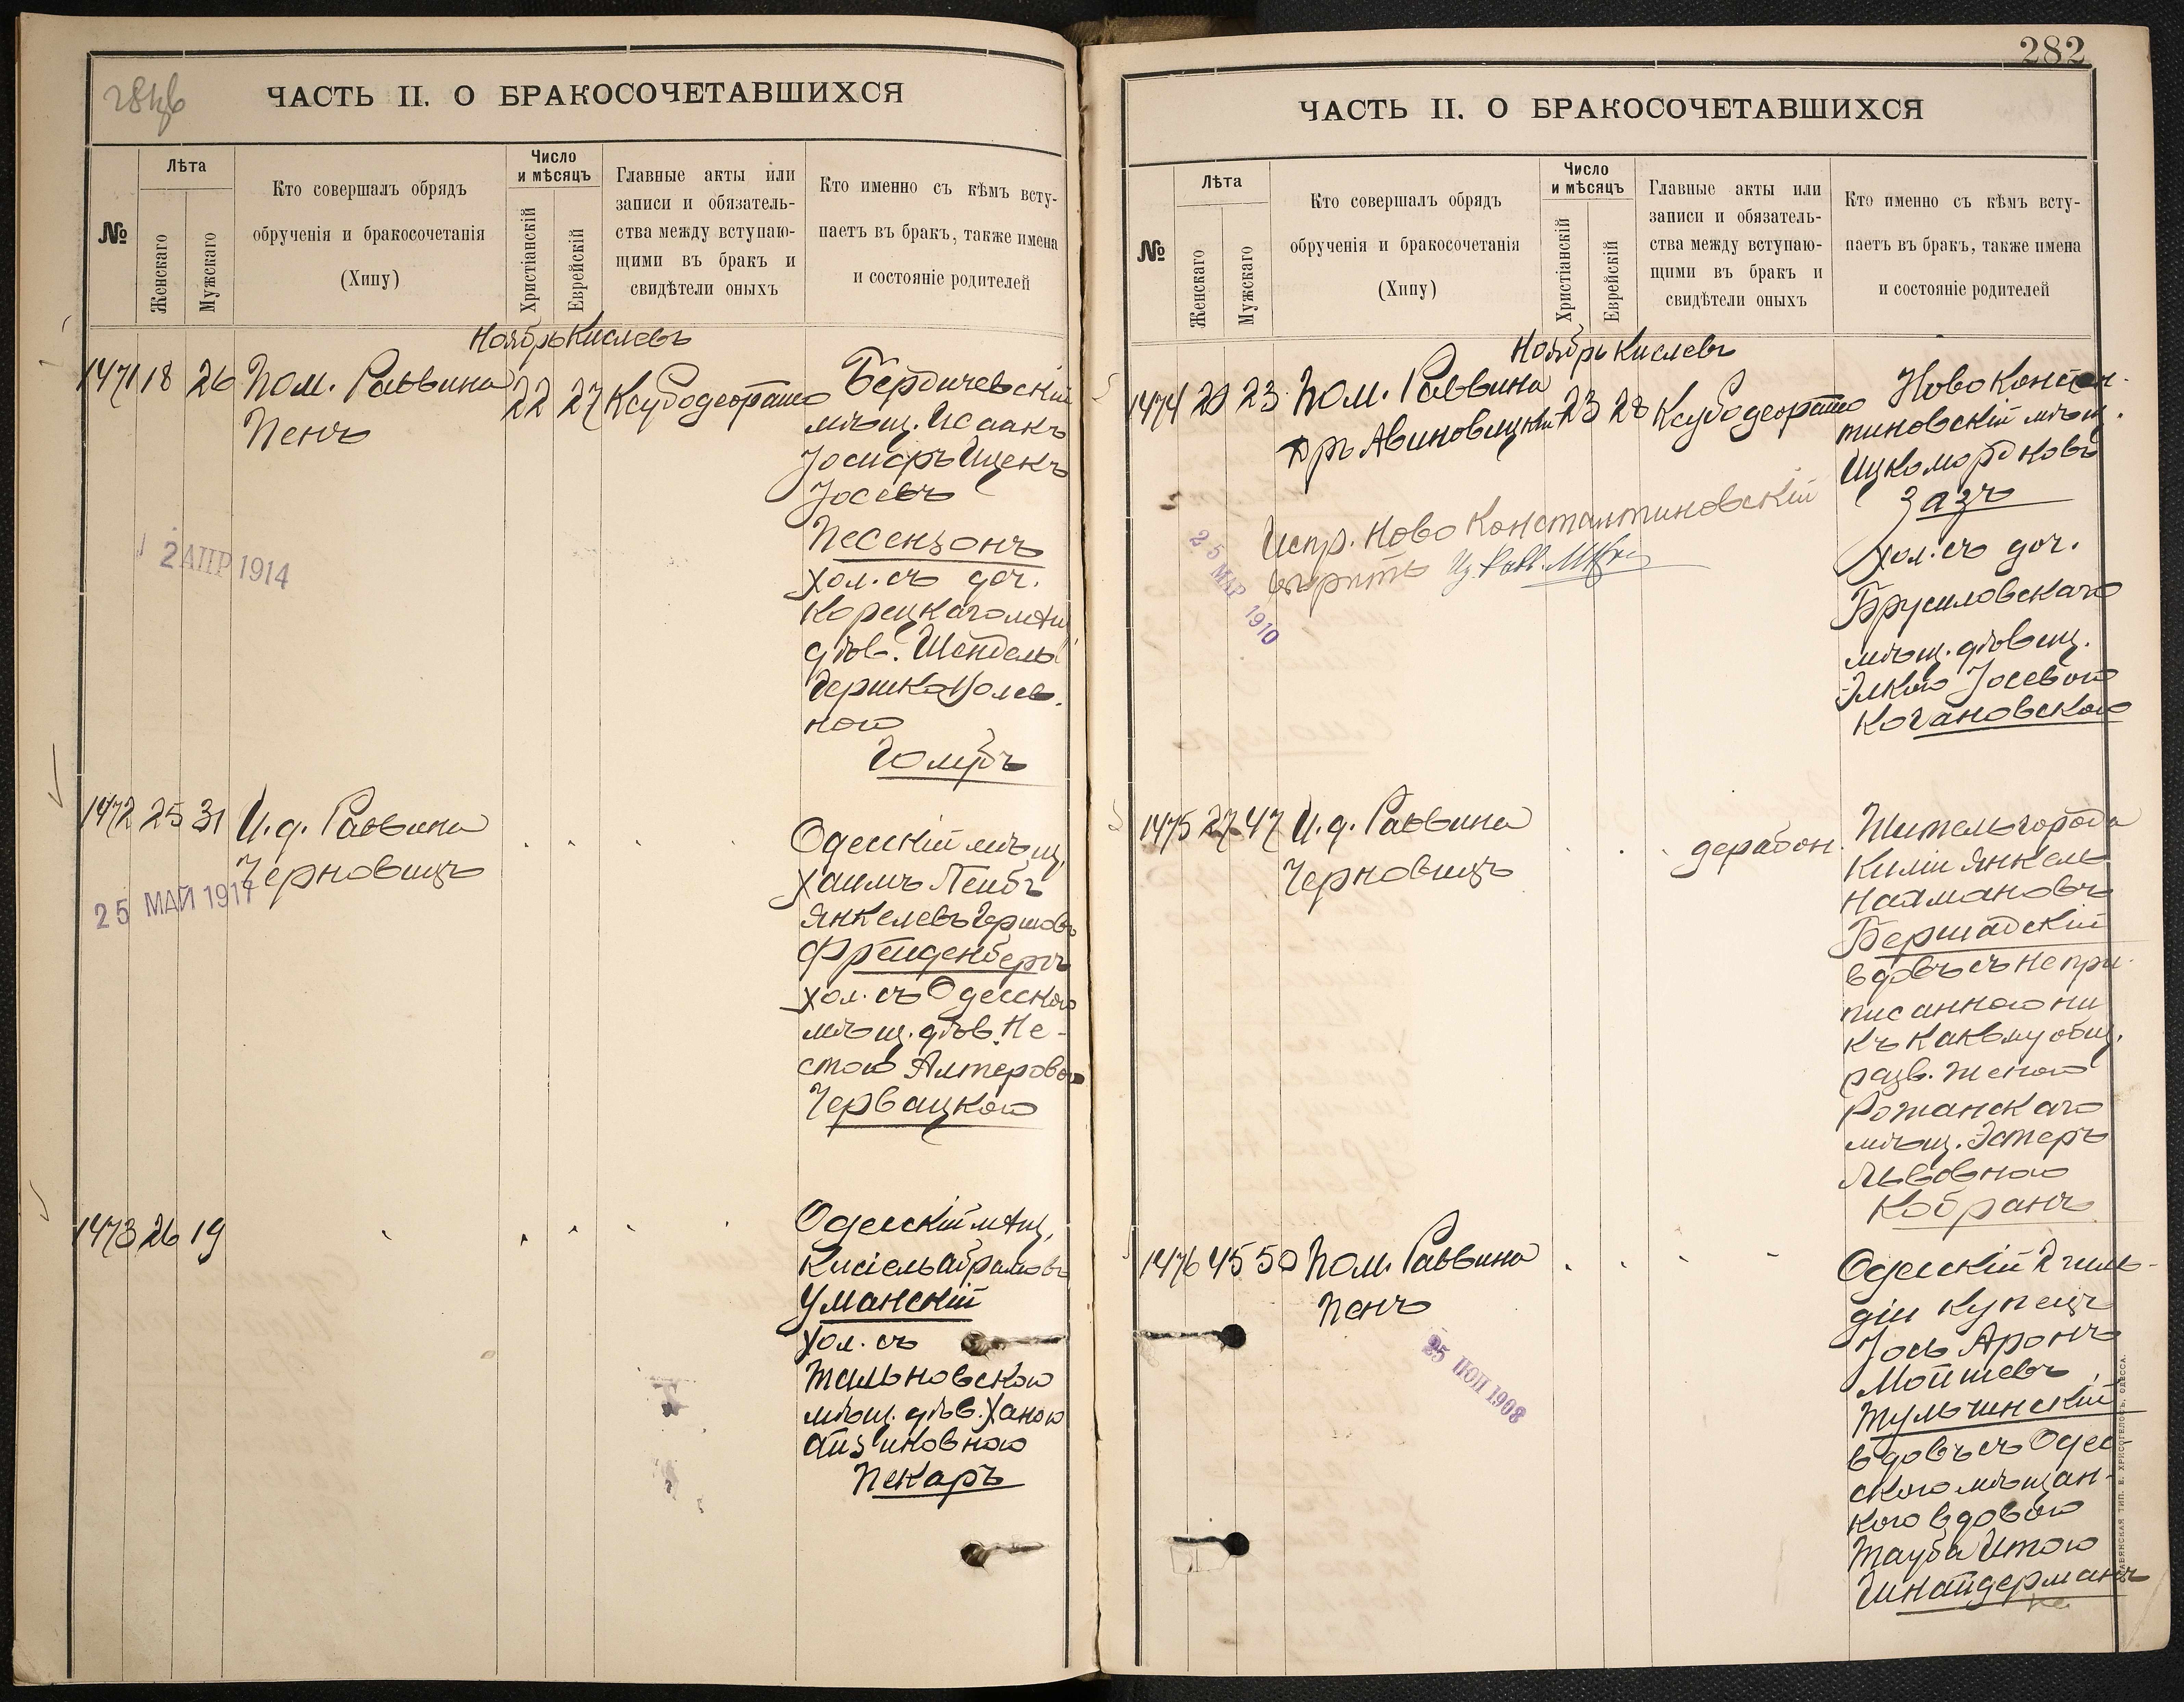 ЧАСТЬ II. О БРАКОСОЧЕТАВШИХСЯ
№
Лѣта
Женскаго
Мужскаго
Кто совершалъ обрядъ
обрученія и бракосочетанія
(Хипу)
Число
и мѣсяцъ
Христіанскій
Еврейскій
Главные акты или
записи и обязатель-
ства между вступаю-
щими въ бракъ и
свидѣтели оныхъ
Кто именно съ кѣмъ всту-
паетъ въ бракъ, также имена
и состояніе родителей
Ноябрь Кислевъ
1471 18 26 Пом. Раввина 22 27 Ксубодеорато
Пенъ
Бердичевскій
мѣщ. Исаакъ
Іосифъ Ицекъ
Іосевъ
Песензонъ
хол. съ доч.
Корецкаго мѣщ.
дѣв. Шейдель
Гершковолев.
ною
Голубъ
2 АПР 1914
1472 25 31 И.д. Раввина
Черновицъ
25 МАЙ 1917
Одесскій мѣщ.
Хаимъ Лейбъ
Янкелевъ Гершовъ
Фрейденбергъ
хол. съ Одесскою
мѣщ. дѣв. Не-
стою Алтеровою
Червацкою
1473 26 19
Одесскій мѣщ.
Кисіель Абрамовъ
Уманскій
хол. съ
Тальновскою
мѣщ. дѣв. Ханою
Айзиковною
Пекаръ
282
ЧАСТЬ II. О БРАКОСОЧЕТАВШИХСЯ
№
Лѣта
Женскаго
Мужскаго
Кто совершалъ обрядъ
обрученія и бракосочетанія
(Хипу)
Число
и мѣсяцъ
Христіанскій
Еврейскій
Главные акты или
записи и обязатель-
ства между вступаю-
щими въ бракъ и
свидѣтели оныхъ
Кто именно съ кѣмъ всту-
паетъ въ бракъ, также имена
и состояніе родителей
Ноябрь Кислевъ
1474 20 23 Пом. Раввина 23 28 Ксубодеорато
д-ръ Авиновицкій
Ново Констан-
тиновскій мѣщ.
Ицко Мордковъ
Зазъ
хол. съ доч.
Брусиловскаго
мѣщ. дѣвиц.
Элкою Іосевою
Когановскою
Испр. Ново Константиновскій
вѣрить
25 МАР 1910
1475 27 47 И.д. Раввина
Черновицъ
дерабон.
Житель города
Киліи Янкель
Наймановъ
Бершадскій
вдовъ съ непри-
писанною ни
къ какому общ.
разв. женою
Рожанскаго
мѣщ. Эстеръ
Львовною
Кобранъ
1476 45 50 Пом. Раввина
Пенъ
25 НОЯ 1908
Одесскій 2 гиль-
діи купецъ
Іось Аронъ
Мойшевъ
Тульчинскій
вдовъ съ Одес-
скою мѣщан-
кою вдовою
Тауба Итою
Шнайдерманъ
СЛАВЯНСКАЯ ТИП. Е. ХРИСОГЕЛОСЪ, ОДЕССА.